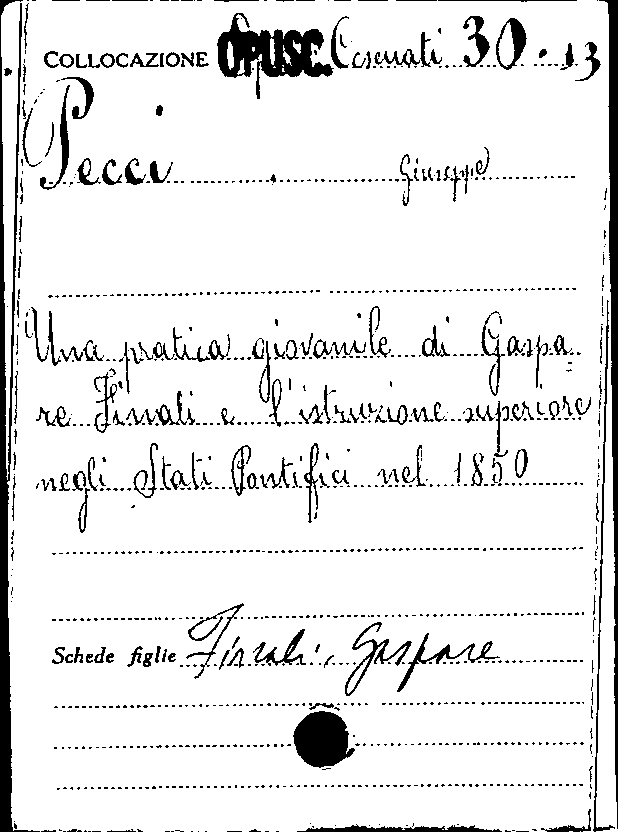 COLLOCAZIONE OPUSC. Cesenati 30.13
Pecci Giuseppe
Una pratica giovanile di Gaspa-
re Finali e l'istruzione superiore
negli Stati Pontifici nel 1850
Schede figlie Finali, Gaspare